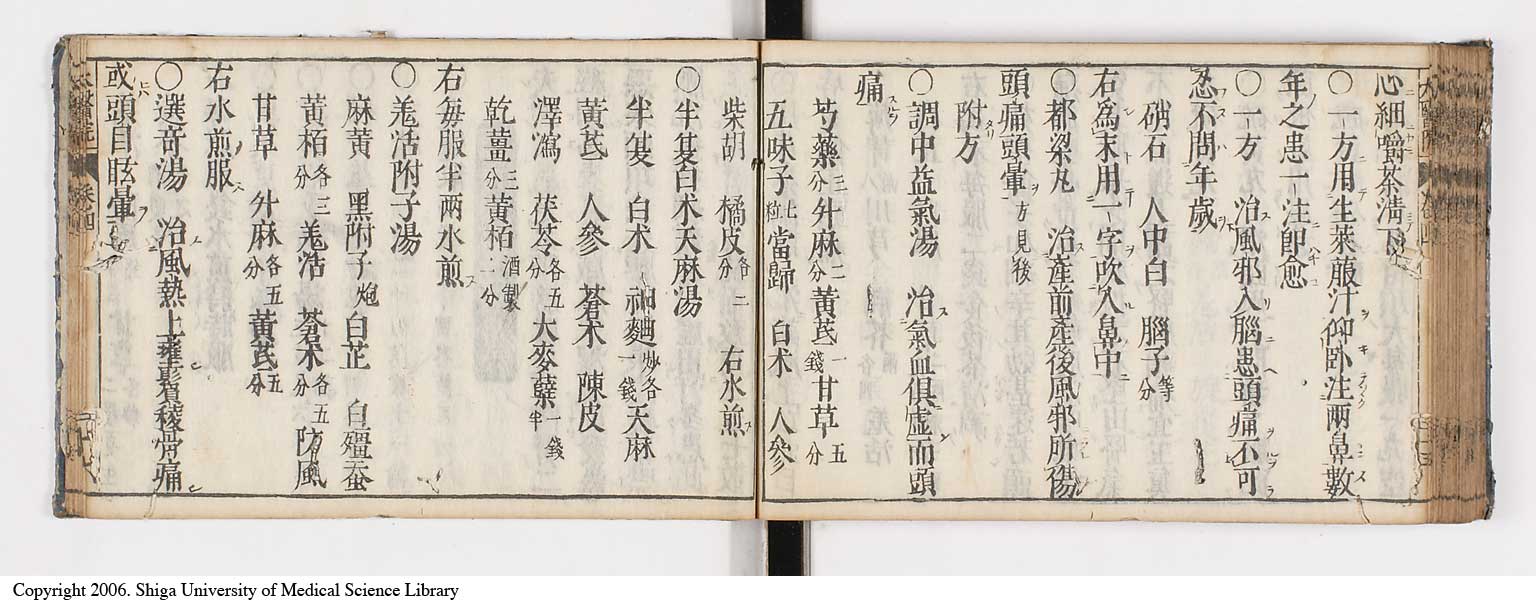 心細嚼茶清下
〇一方用生萊菔汁仰卧注兩鼻數
年之患一注即愈
〇一方治風邪入腦患頭痛不可
忍不問年歲
硝石 人中白 腦子等分
右爲末用一字吹入鼻中
〇都梁丸 治產前產後風邪所傷
頭痛頭暈方見後
附方
〇調中益氣湯 治氣血俱虛而頭
痛
芍藥三分 升麻二分 黃芪一錢 甘草五分
五味子七粒 當歸 白朮 人參
柴胡 橘皮各二分 右水煎
〇半夏白朮天麻湯
半夏 白朮 神麯炒各一錢 天麻
黃芪 人參 蒼朮 陳皮
澤瀉 茯苓各五分 大麥蘖一錢半
乾薑三分 黃栢酒製二分
右每服半兩水煎
〇羌活附子湯
麻黃 黑附子炮 白芷 白殭蚕
黃栢各三分 羌活 蒼朮各五分 防風
甘草 升麻各五分 黃芪五分
右水煎服
〇選奇湯 治風熱上壅眉稜骨痛
或頭目眩暈
Copyright 2006. Shiga University of Medical Science Library